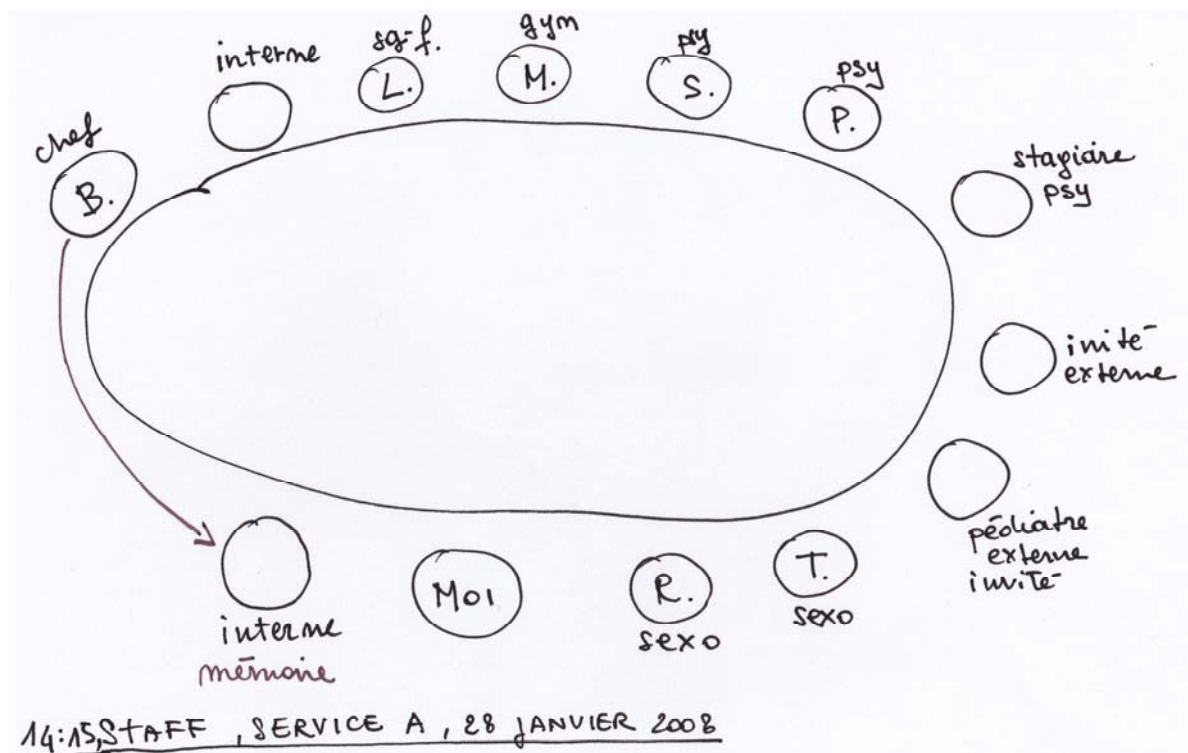 interne
sg-f.
gym
psy
psy
chef
L.
M.
S.
P.
B.
stagiaire
psy
inité
externe
pédiatre
externe
invité
MOI
R.
T.
sexo
sexo
interne
mémoire
14:15, STAFF, SERVICE A, 28 JANVIER 2008